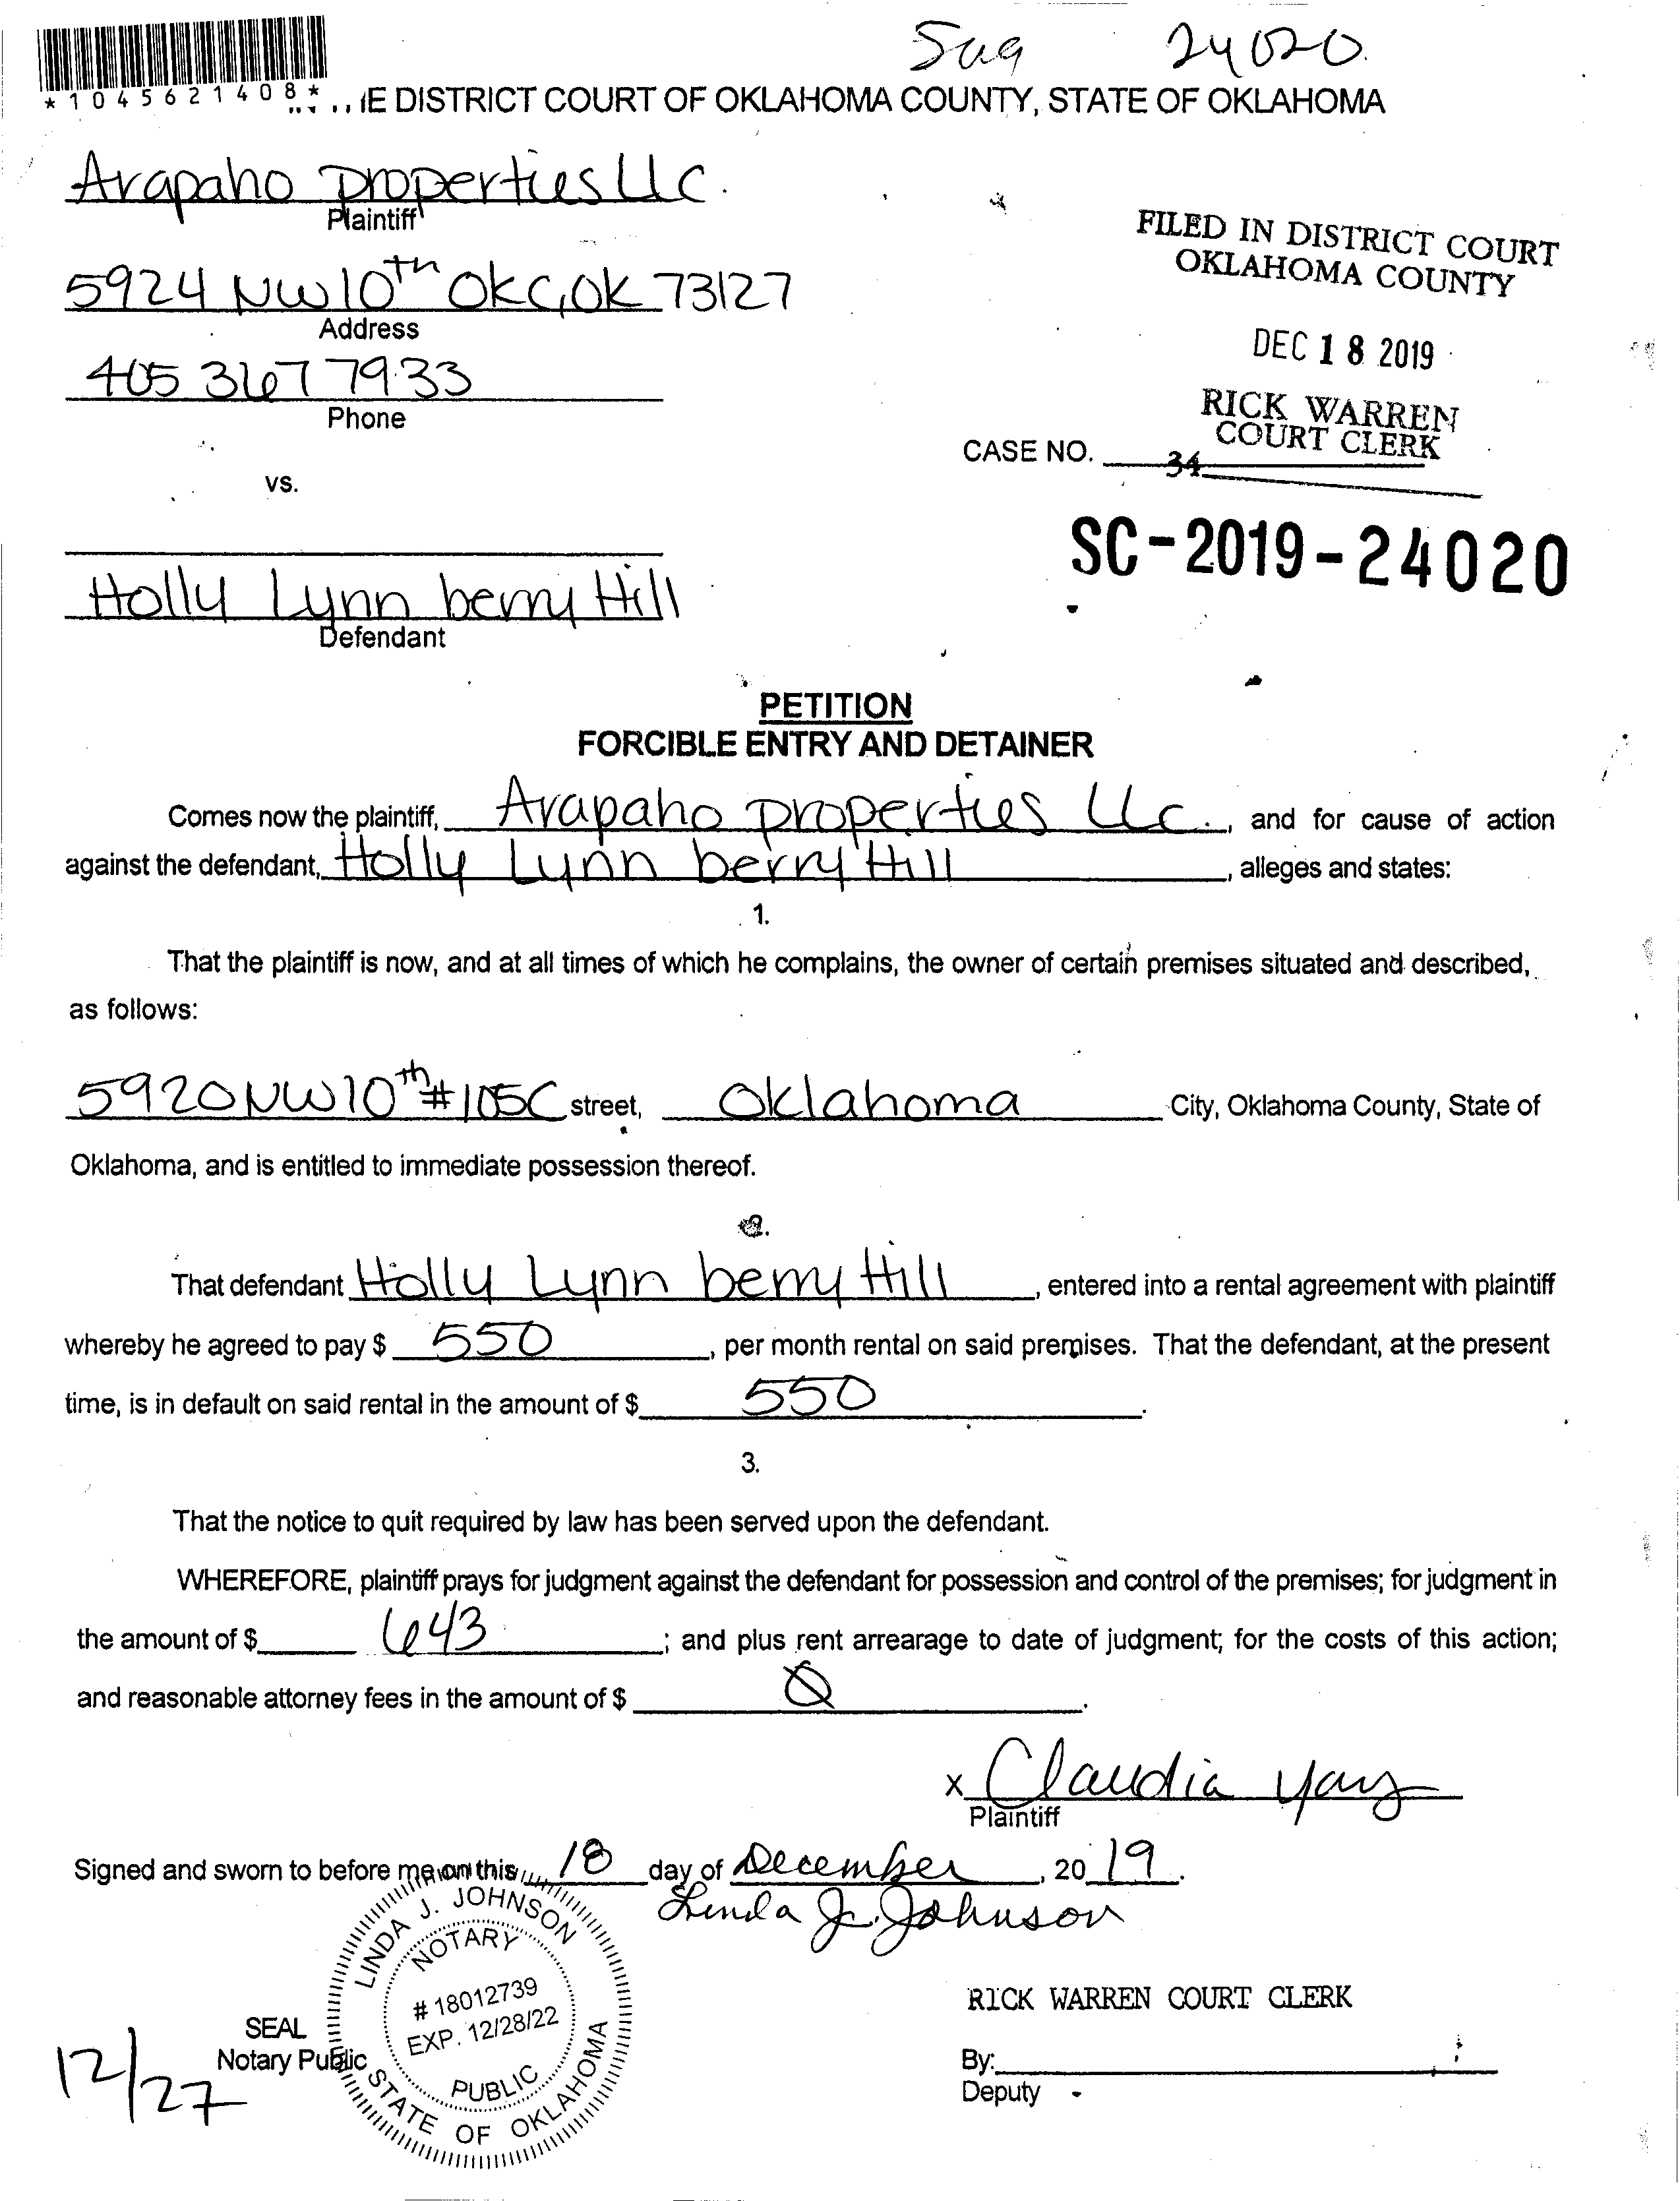 Sug 24020
*1045621408*
IE DISTRICT COURT OF OKLAHOMA COUNTY, STATE OF OKLAHOMA
Arapaho properties LLC.
Plaintiff
5924 NW 10th OKC, OK 73127
Address
405 367 7933
Phone
vs.
FILED IN DISTRICT COURT
OKLAHOMA COUNTY
DEC 18 2019
RICK WARREN
COURT CLERK
CASE NO.
34
SC-2019-24020
Holly Lynn berry Hill
Defendant
PETITION
FORCIBLE ENTRY AND DETAINER
Comes now the plaintiff, Arapaho properties LLC., and for cause of action
against the defendant, Holly Lynn berry Hill, alleges and states:
1.
That the plaintiff is now, and at all times of which he complains, the owner of certain premises situated and described,
as follows:
5920 NW 10th #105C street, Oklahoma City, Oklahoma County, State of
Oklahoma, and is entitled to immediate possession thereof.
2.
That defendant Holly Lynn berry Hill, entered into a rental agreement with plaintiff
whereby he agreed to pay $ 550, per month rental on said premises. That the defendant, at the present
time, is in default on said rental in the amount of $ 550.
3.
That the notice to quit required by law has been served upon the defendant.
WHEREFORE, plaintiff prays for judgment against the defendant for possession and control of the premises; for judgment in
the amount of $ 643; and plus rent arrearage to date of judgment; for the costs of this action;
and reasonable attorney fees in the amount of $ Ø.
x Claudia
Plaintiff
Signed and sworn to before me on this 18 day of December, 2019.
Linda J. Johnson
LINDA J. JOHNSON
NOTARY
# 18012739
EXP. 12/28/22
PUBLIC
STATE OF OKLAHOMA
RICK WARREN COURT CLERK
SEAL
Notary Public
12/27
By:
Deputy